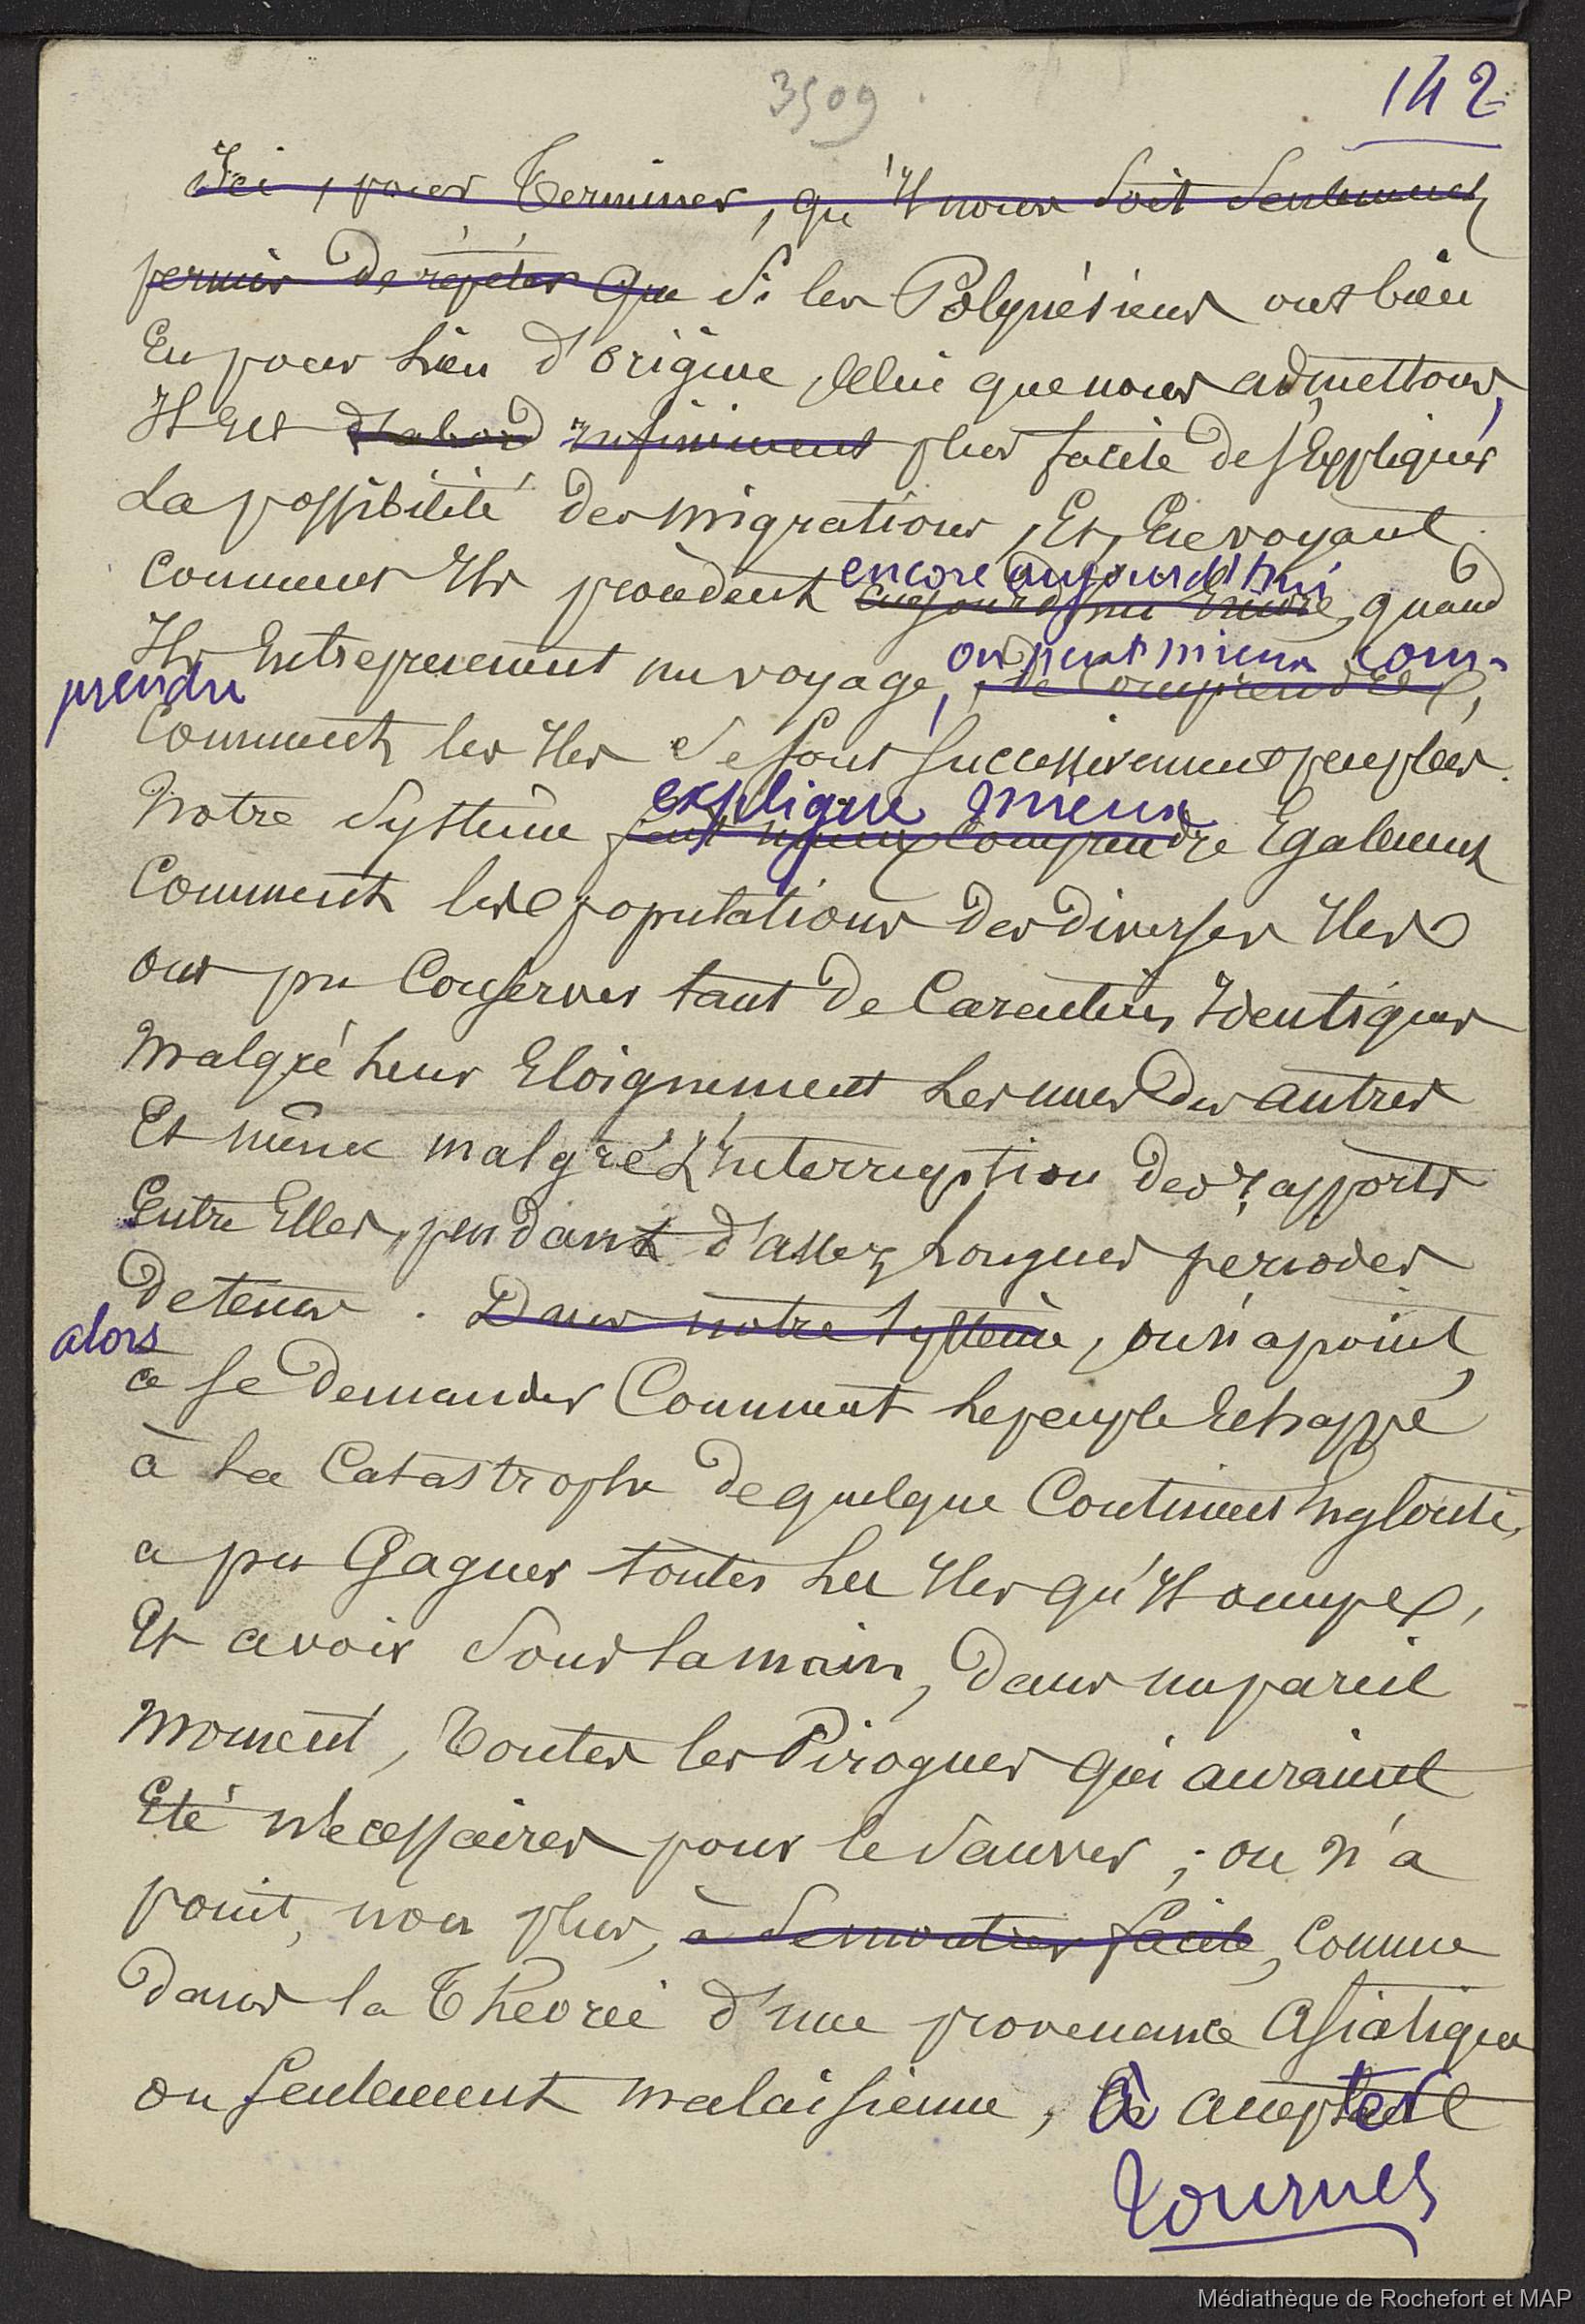 3509
142
Ici, pour terminer, qu'il nous soit seulement
permis de répéter que si les Polynésiens ont bien
Eu pour lieu d'origine, celui que nous admettons,
Il est d'abord infiniment plus facile de s'Expliquer
La possibilité des migrations, Et, En voyant
encore aujourd'hui
Comment Ils procèdent aujourd'hui Encore, quand
on peut mieux com-
Ils Entreprennent un voyage, de comprendre,
prendre
Comment les Iles se sont successivement peuplées.
explique mieux
Notre Système fait mieux comprendre Egalement
Comment les populations des diverses Iles
ont pu Conserver tant de Caractères Identiques
Malgré leur Eloignement les unes des autres
Et même malgré L'Interruption des rapports
Entre Elles, pendant d'assez longues périodes
de tems. Dans notre système, on n'a point,
alors
à se demander Comment le peuple Echappé
à la Catastrophe de quelque Continent Englouti,
a pu Gagner toutes les Iles qu'Il occupe,
Et avoir sous la main, dans un pareil
Moment, toutes les Pirogues qui auraient
Eté nécessaires pour le sauver ; on n'a
point, non plus, à se montrer facile, Comme
dans la Théorie d'une provenance Asiatique
ou seulement malaisienne, à accepter
tournez
Médiathèque de Rochefort et MAP